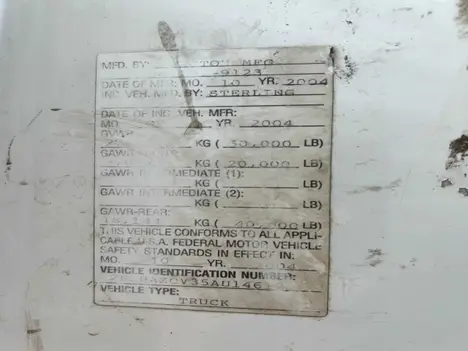 MFD. BY: MFG
9123
DATE OF MFR: MO. 10 YR. 2004
INC. VEH. MFD. BY: STERLING
DATE OF INC. VEH. MFR:
MO. YR. 2004
GVWR
KG ( LB)
GAWR
KG ( 20,000 LB)
GAWR INTERMEDIATE (1):
KG ( LB)
GAWR INTERMEDIATE (2):
KG ( LB)
GAWR-REAR:
KG ( LB)
THIS VEHICLE CONFORMS TO ALL APPLI-
CABLE U.S.A. FEDERAL MOTOR VEHICLE
SAFETY STANDARDS IN EFFECT IN:
MO. 10 YR. 2004
VEHICLE IDENTIFICATION NUMBER:
VEHICLE TYPE:
TRUCK